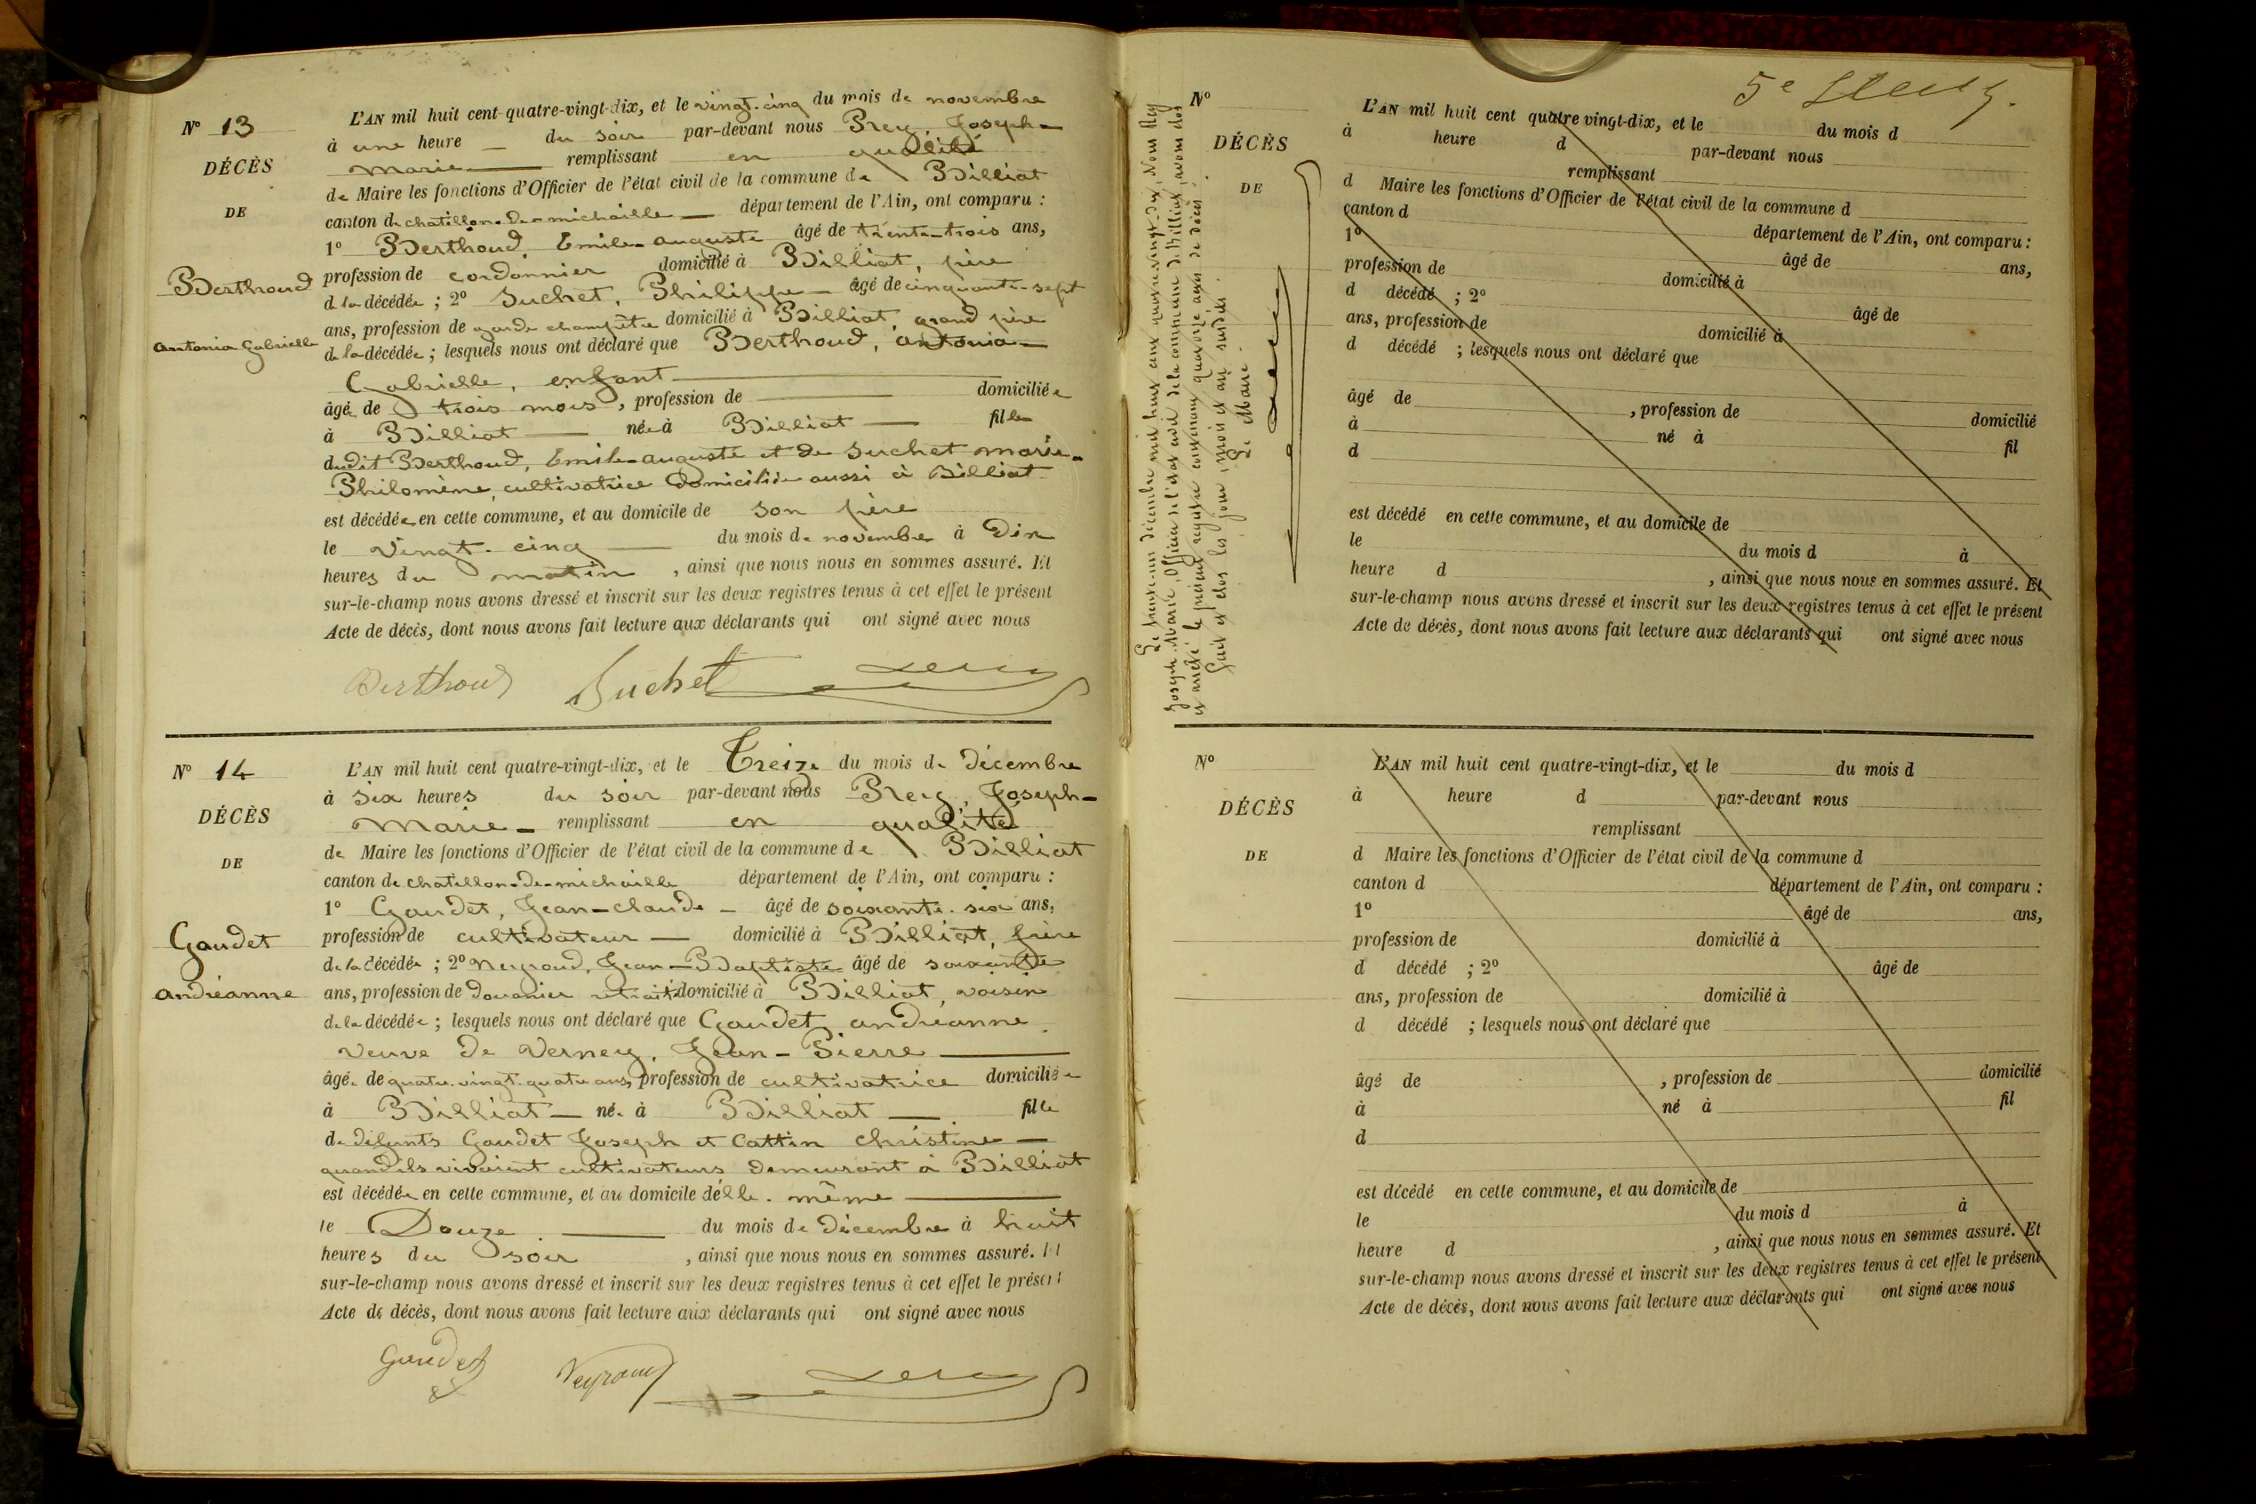 N° 13
DÉCÈS
DE
Berthoud
Antonia Gabrielle
L'AN mil huit cent quatre-vingt-dix, et le vingt-cinq du mois de novembre
à une heure — du soir par-devant nous Prey, Joseph-
Marie — remplissant en qualité
de Maire les fonctions d'Officier de l'état civil de la commune de Billiat
canton de chatillon-de-michaille — département de l'Ain, ont comparu :
1° Berthoud, Emile-auguste âgé de trente-trois ans,
profession de cordonnier domicilié à Billiat, père
d la décédée ; 2° Suchet, Philippe — âgé de cinquante-sept
ans, profession de garde champêtre domicilié à Billiat, grand père
de la décédée ; lesquels nous ont déclaré que Berthoud, antonia-
Gabrielle, enfant —
âgée de trois mois, profession de — domiciliée
à Billiat — née à Billiat — fille
dudit Berthoud, Emile-auguste et de Suchet marie-
Philomène, cultivatrice domiciliée aussi à Billiat
est décédée en cette commune, et au domicile de son père
le vingt-cinq — du mois de novembre à Dix
heures du matin , ainsi que nous nous en sommes assuré. Et
sur-le-champ nous avons dressé et inscrit sur les deux registres tenus à cet effet le présent
Acte de décès, dont nous avons fait lecture aux déclarants qui ont signé avec nous
Berthoud Suchet
N° 14
DÉCÈS
DE
Gaudet
andréanne
L'AN mil huit cent quatre-vingt-dix, et le Treize du mois de décembre
à six heures du soir par-devant nous Prey, Joseph-
Marie — remplissant en qualité
de Maire les fonctions d'Officier de l'état civil de la commune de Billiat
canton de chatillon-de-michaille département de l'Ain, ont comparu :
1° Gaudet, Jean-claude — âgé de soixante-six ans,
profession de cultivateur — domicilié à Billiat, frère
de la décédée ; 2° Neyroud, Jean-Baptiste âgé de soixante
ans, profession de douanier retraité domicilié à Billiat, voisin
de la décédée ; lesquels nous ont déclaré que Gaudet andréanne,
veuve de Verney, Jean-Pierre —
âgée de quatre-vingt-quatre ans, profession de cultivatrice domiciliée
à Billiat — née à Billiat — fille
de défunts Gaudet Joseph et Cattin christine —
quand ils vivaient cultivateurs demeurant à Billiat
est décédée en cette commune, et au domicile d'elle-même —
le Douze — du mois de décembre à huit
heures du soir , ainsi que nous nous en sommes assuré. Et
sur-le-champ nous avons dressé et inscrit sur les deux registres tenus à cet effet le présent
Acte de décès, dont nous avons fait lecture aux déclarants qui ont signé avec nous
Gaudet Neyroud
Le trente-un décembre mil huit cent quatre-vingt-dix, Nous Prey
Joseph-Marie, Officier de l'état civil de la commune de Billiat, avons clos
et arrêté le présent registre contenant quatorze actes de décès.
Fait et clos les jour, mois et an susdits.
Le Maire.
5e
N°
DÉCÈS
DE
L'AN mil huit cent quatre vingt-dix, et le du mois d
à heure d par-devant nous
remplissant
d Maire les fonctions d'Officier de l'état civil de la commune d
canton d département de l'Ain, ont comparu :
1° âgé de ans,
profession de domicilié à
d décédé ; 2° âgé de
ans, profession de domicilié à
d décédé ; lesquels nous ont déclaré que
âgé de , profession de domicilié
à né à fil
d
est décédé en cette commune, et au domicile de
le du mois d à
heure d , ainsi que nous nous en sommes assuré. Et
sur-le-champ nous avons dressé et inscrit sur les deux registres tenus à cet effet le présent
Acte de décès, dont nous avons fait lecture aux déclarants qui ont signé avec nous
N°
DÉCÈS
DE
L'AN mil huit cent quatre-vingt-dix, et le du mois d
à heure d par-devant nous
remplissant
d Maire les fonctions d'Officier de l'état civil de la commune d
canton d département de l'Ain, ont comparu :
1° âgé de ans,
profession de domicilié à
d décédé ; 2° âgé de
ans, profession de domicilié à
d décédé ; lesquels nous ont déclaré que
âgé de , profession de domicilié
à né à fil
d
est décédé en cette commune, et au domicile de
le du mois d à
heure d , ainsi que nous nous en sommes assuré. Et
sur-le-champ nous avons dressé et inscrit sur les deux registres tenus à cet effet le présent
Acte de décès, dont nous avons fait lecture aux déclarants qui ont signé avec nous